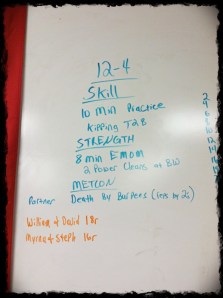 12-4
Skill
10 Min Practice
Kipping T2B
STRENGTH
8 min EMOM
2 Power Cleans at BW
METCON
Partner Death By Burpees (inc by 2)
William & David 18r
Myrna & Steph 16r
2
4
6
8
10
12
14
16